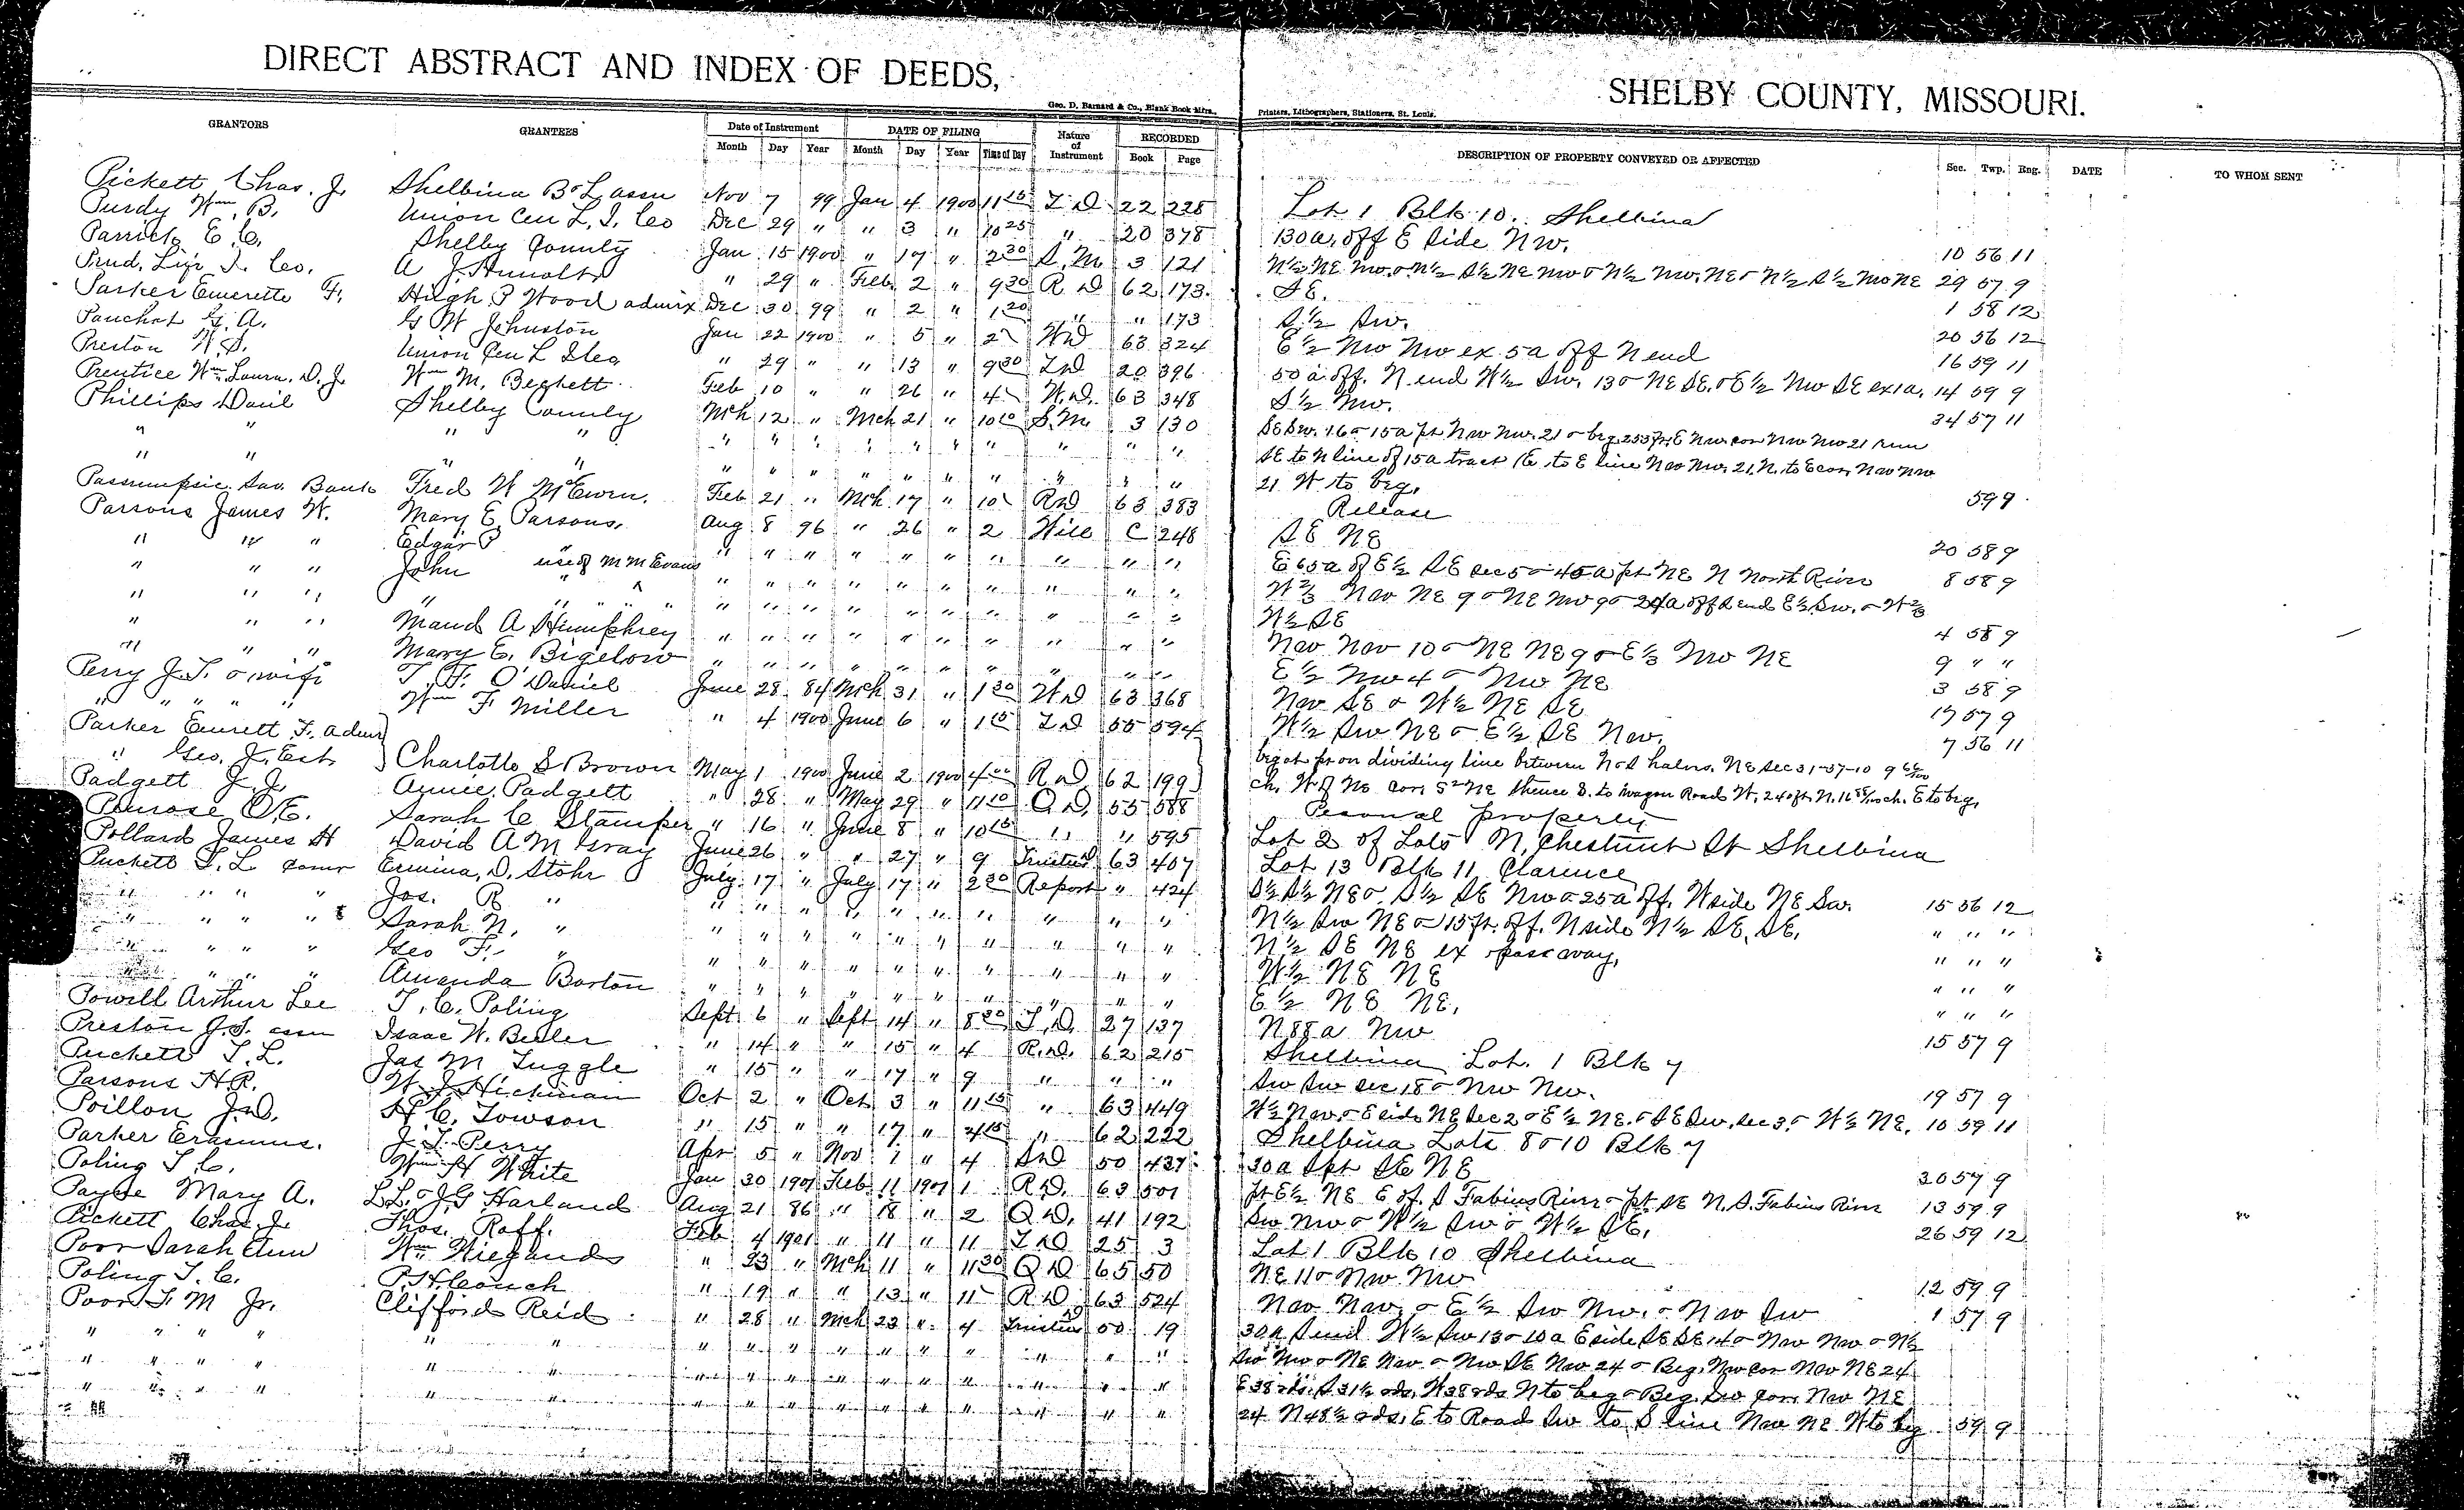 DIRECT ABSTRACT AND INDEX OF DEEDS, SHELBY COUNTY, MISSOURI.
Geo. D. Barnard & Co., Blank Book Mfrs. Printers, Lithographers, Stationers, St. Louis.
GRANTORS GRANTEES Date of Instrument DATE OF FILING Nature of Instrument RECORDED DESCRIPTION OF PROPERTY CONVEYED OR AFFECTED Sec. Twp. Rng. DATE TO WHOM SENT
Month Day Year Month Day Year Time of Day Book Page
Pickett Chas. J. Shelbina B & L assn Nov 7 99 Jan 4 1900 11 15 T D 22 225 Lot 1 Blk 10. Shelbina
Purdy Wm. B. Union Cen L. I. Co Dec 29 " " 3 " 10 25 " 20 378 130a. off E side NW. 10 56 11
Parrick E. C. Shelby County Jan 15 1900 " 17 " 2 30 S. M. 3 121 N½ NE NW. & N½ S½ NE NW & N½ NW. NE & N½ S½ NW NE 29 57 9
Prud. Life I. Co. A J. " 29 " Feb. 2 " 9 30 R D 62 173. SE. 1 58 12
Parker Emerette F. Hugh P Wood admrx Dec 30 99 " 2 " 1 20 " " 173 S½ SW. 20 56 12
Panchot G. A. G W Johnston Jan 22 1900 " 5 " 2 WD 63 324 E½ NW NW ex 5a off N end 16 59 11
Preston W. S. Union Cen L I Co " 29 " " 13 " 9 30 T D 20 396 50 a. off. N. end W½ SW. 13 & NE SE. & E½ NW SE ex 1a. 14 59 9
Prentice Wm. Laura. D. J. Wm M. Beckett Feb 10 " " 26 " 4 W. D. 63 348 S½ NW. 34 57 11
Phillips Davil Shelby County Mch 12 " Mch 21 " 10 10 S. M. 3 130 SE SW. 16 & 15a pt NW NW. 21 & beg 253 ft. E NW. cor NW NW 21 run
" " " " " " " " " " " " " " SE to N line of 15a tract E. to E line NW NW. 21, N. to E cor. NW NW
" " " " " " " " " " " " " " 21 W to beg. 59 9
Passumpsic Sav. Bank Fred W McEwen. Feb 21 " Mch 17 " 10 R D 63 383 Release
Parsons James W. Mary E. Parsons. Aug 8 96 " 26 " 2 Will C 248 SE NE 20 58 9
" " " Edgar P " " " " " " " " " " " E 65a of E½ SE sec 5 & 45a pt NE N North River 8 58 9
" " " John " use of M M Evans " " " " " " " " " " W⅔ NW NE 9 & NE NW 9 & 24a off S end E½ SW. & W⅔
" " " " " " " " " " " " " " " " " W½ SE 4 58 9
" " " Maud A Humphrey " " " " " " " " " " NW NW 10 & NE NE 9 & E⅓ NW NE 9 " "
" " " Mary E. Bigelow " " " " " " " " " " E½ NW 4 & NW NE 3 58 9
Perry J. T. & wife T. F. O'Daniel June 28 84 Mch 31 " 1 30 W D 63 368 NW SE & W½ NE SE 17 57 9
" " " " Wm F Miller " 4 1900 June 6 " 1 15 T D 55 594 W½ SW NE & E½ SE NW. 7 56 11
Parker Emerett F. admr beg at pt on dividing line between N & S halves. NE Sec 31-57-10 9 66/100
" Geo. J. Est Charlotte S Brown May 1 1900 June 2 1900 4 00 R D 62 199 ch. W of NE cor. S½ NE thence S. to Wagon Road W. 240 ft. N. 16 58/100 ch. E to beg.
Padgett J. J. Annie Padgett " 28 " May 29 " 11 10 Q D. 55 588 Personal property
Penrose O. E. Sarah C Stamper " 16 " June 8 " 10 15 " " 595 Lot 2 of Lots N. Chestnut St Shelbina
Pollard James H David A M Gray June 26 " " 27 " 9 Trustee 63 407 Lot 13 Blk 11 Clarence
Puckett T. L comr Ermina. D. Stohr July 17 " July 17 " 2 30 Report " 424 S½ S½ NE &. S½ SE NW & 25a off. W side NE SW. 15 56 12
" " " " Jos. R " " " " " " " " " " " N½ SW NE & 15 ft. off. N side N½ SE. SE. " " "
" " " " Sarah N. " " " " " " " " " " " N½ SE NE ex pass way. " " "
" " " " Geo F. " " " " " " " " " " " W½ NE NE " " "
" " " Amanda Barton " " " " " " " " " " E½ NE NE. " " "
Powell Arthur Lee T. C. Poling Sept 6 " Sept 14 " 8 30 T. D. 27 137 N 88a NW 15 57 9
Preston J. S. assn Isaac W. Besler " 14 " " 15 " 4 R. D. 62 215 Shelbina Lot. 1 Blk 7
Puckett T. L. Jas M Tuggle " 15 " " 17 " 9 " " " SW SW sec 18 & NW NW. 19 57 9
Parsons H. R. W. J. Hickman Oct 2 " Oct 3 " 11 15 " 63 449 W½ NW. & E side NE Sec 2 & E½ NE. & SE SW. sec 3. & W½ NE. 10 59 11
Poillon J. D. H. C. Towson " 15 " " 17 " 4 15 " 62 222 Shelbina Lots 8 & 10 Blk 7
Parker Erasmus. J. T. Perry Apr 5 " Nov 1 " 4 S D 50 437 30a S pt SE NE 30 57 9
Poling T C. Wm H White Jan 30 1901 Feb 11 1901 1 R D. 63 501 pt E½ NE E of. S Fabius River & pt SE N. S. Fabius River 13 59 9
Payne Mary A. L L. & J. G Harland Aug 21 86 " 18 " 2 Q D. 41 192 SW NW & W½ SW & W½ SE. 26 59 12
Pickett Chas. J. Thos. Raff. Feb 4 1901 " 11 " 11 T D 25 3 Lot 1 Blk 10 Shelbina
Poor Sarah Ann Wm Wiegand " 23 " Mch 11 " 11 30 Q D 65 50 NE 11 & NW NW 12 59 9
Poling T. C. P. H. Couch " 19 " " 13 " 11 R D 63 524 NW NW. & E½ SW NW. & NW SW 1 57 9
Poor F. M Jr. Clifford Reid " 28 " Mch 23 " 4 Trustee 50 19 30a S end W½ SW 13 & 10a E side SE SE 14 & NW NW & N½
" " " " " " " " " " " " " " " " SW NW & NE NW & NW SE NW 24 & Beg. NW cor NW NE 24
" " " " " " " " " " " " " " " " E 38 rds. S 31½ rds. W 38 rds N to beg & Beg. SW cor. NW NE
" " " " " " " " " " " " " " " " 24 N 48½ rds. E to Road SW to S line NW NE W to beg 59 9